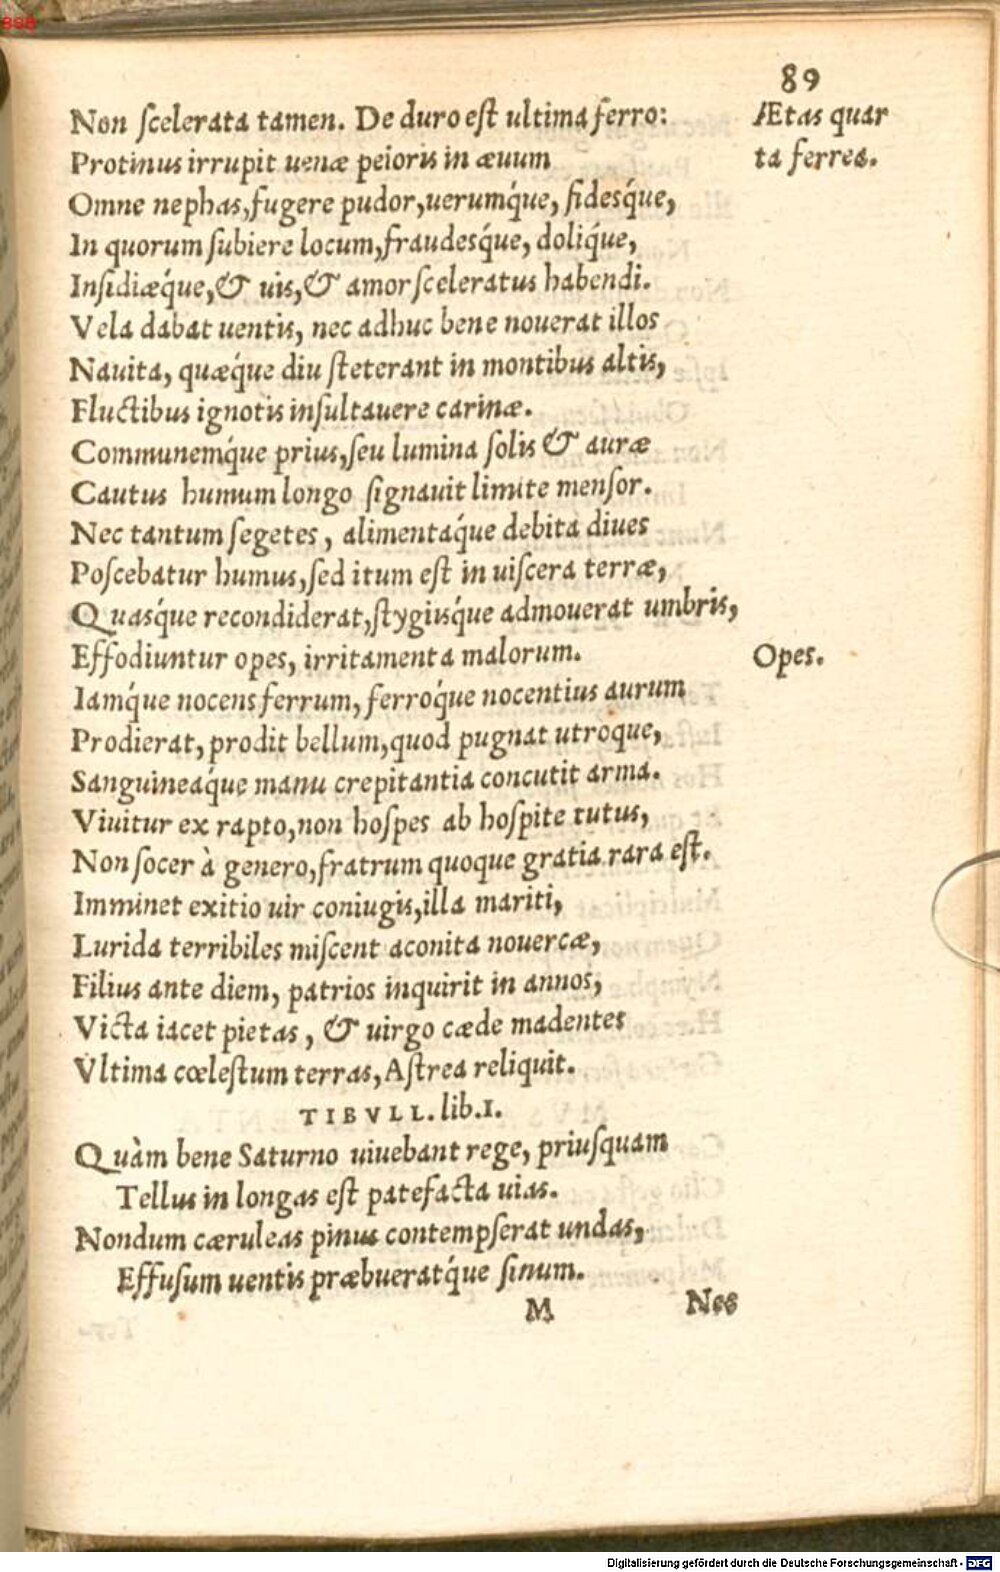 89
Non scelerata tamen. De duro est ultima ferro:
Ætas quar
Protinus irrupit uenæ peioris in æuum
ta ferrea.
Omne nephas, fugere pudor, uerumq́ue, fidesq́ue,
In quorum subiere locum, fraudesq́ue, doliq́ue,
Insidiæq́ue, & uis, & amor sceleratus habendi.
Vela dabat uentis, nec adhuc bene nouerat illos
Nauita, quæq́ue diu steterant in montibus altis,
Fluctibus ignotis insultauere carinæ.
Communemq́ue prius, seu lumina solis & auræ
Cautus humum longo signauit limite mensor.
Nec tantum segetes, alimentaq́ue debita diues
Poscebatur humus, sed itum est in uiscera terræ,
Quasq́ue recondiderat, stygiisq́ue admouerat umbris,
Effodiuntur opes, irritamenta malorum.
Opes.
Iamq́ue nocens ferrum, ferroq́ue nocentius aurum
Prodierat, prodit bellum, quod pugnat utroque,
Sanguineaq́ue manu crepitantia concutit arma.
Viuitur ex rapto, non hospes ab hospite tutus,
Non socer à genero, fratrum quoque gratia rara est.
Imminet exitio uir coniugis, illa mariti,
Lurida terribiles miscent aconita nouercæ,
Filius ante diem, patrios inquirit in annos,
Victa iacet pietas, & uirgo cæde madentes
Vltima cœlestum terras, Astrea reliquit.
TIBVLL. lib. I.
Quàm bene Saturno uiuebant rege, priusquam
Tellus in longas est patefacta uias.
Nondum cæruleas pinus contempserat undas,
Effusum uentis præbueratq́ue sinum.
M
Nec
Digitalisierung gefördert durch die Deutsche Forschungsgemeinschaft - DFG